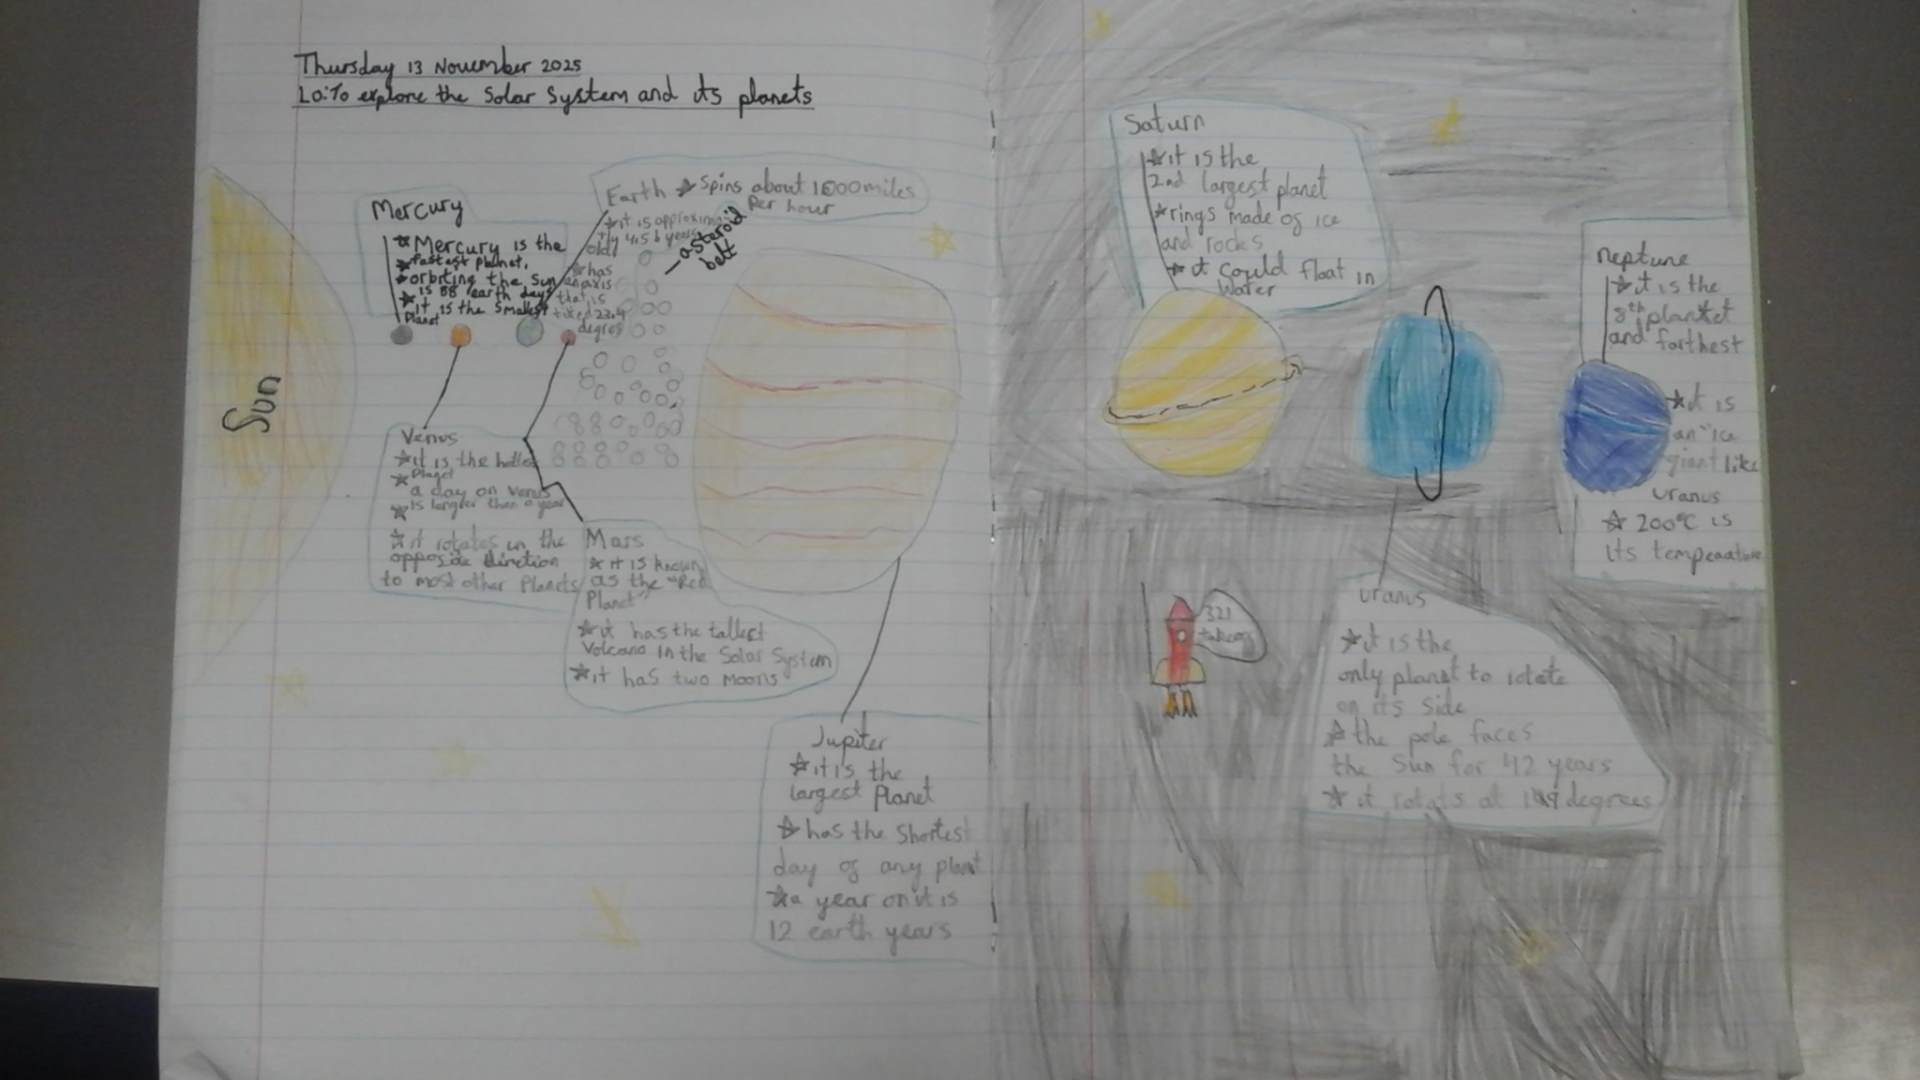 Thursday 13 November 2025
LO: To explore the Solar System and its planets
Sun
Mercury
Mercury is the
fastest planet,
orbiting the Sun
is 88 earth days
it is the smallest
Planet
Earth
Spins about 1000 miles
Per hour
it is approxima
tly 4.5 b years
old
has
an axis
that is
tilted 23.4
degres
asteroid
belt
Venus
it is the hottest
Planet
a day on Venus
is longer than a year
it rotates in the
opposite direction
to most other Planets
Mars
it is known
as the "Red
Planet"
it has the tallest
Volcano in the Solar System
it has two moons
Jupiter
it is the
largest Planet
has the Shortest
day of any planet
a year on it is
12 earth years
Saturn
it is the
2nd largest planet
rings made of ice
and rocks
it could float in
Water
321
Uranus
it is the
only planet to rotate
on its side
the pole faces
the Sun for 42 years
it rotats at degrees
Neptune
it is the
8th
and farthest
it is
an "ice
giant like
Uranus
200°C is
its